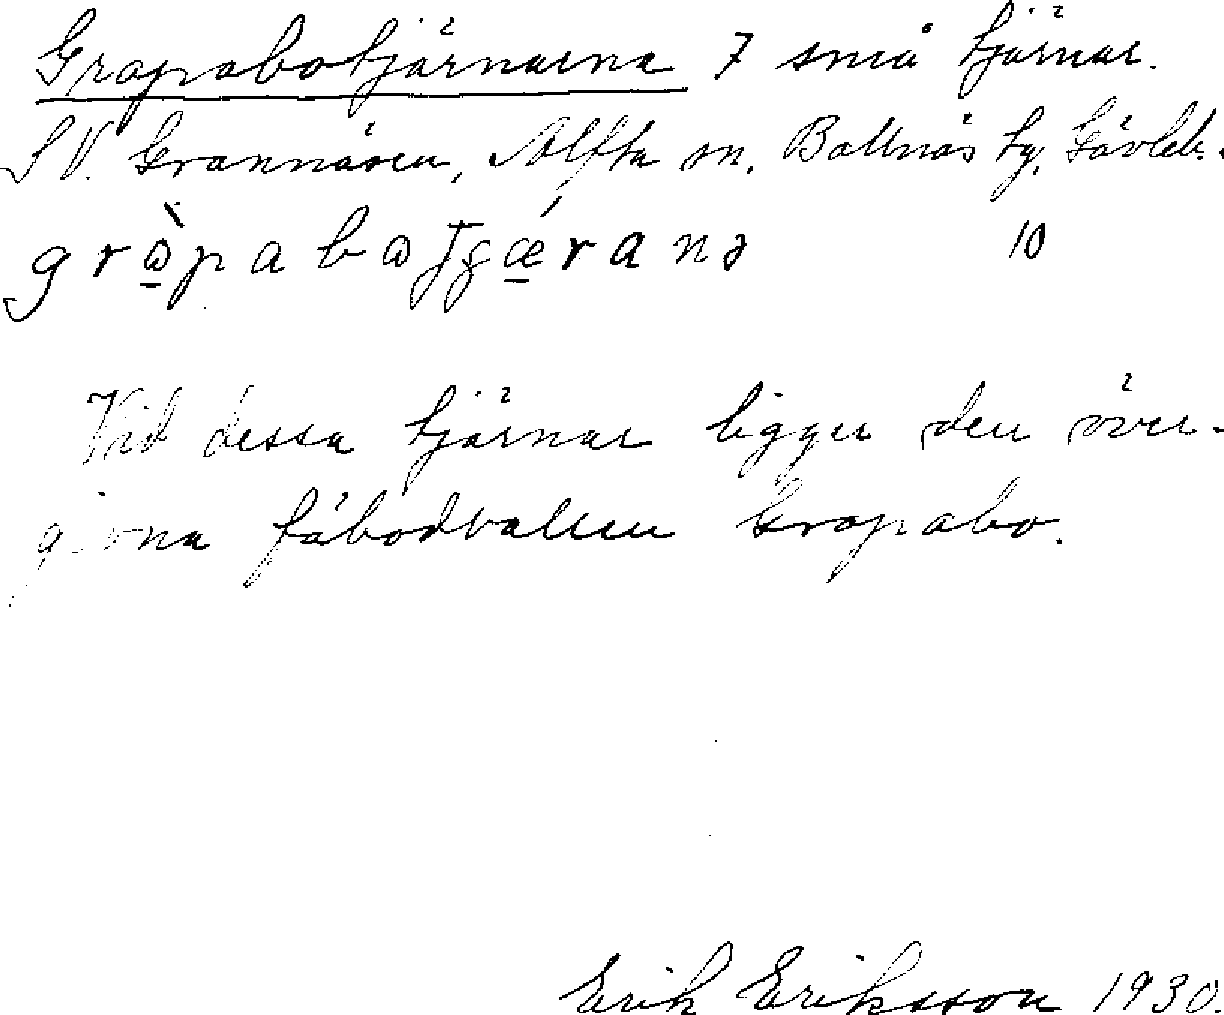 Grapabotjärnarna 7 små tjärnar.
SV. Grannäsen, Alfta sn. Bollnäs tg. Gävleb.
10
Vid dessa tjärnar ligger den över-
givna fäbodvallen Grapabo.
Erik Eriksson 1930.